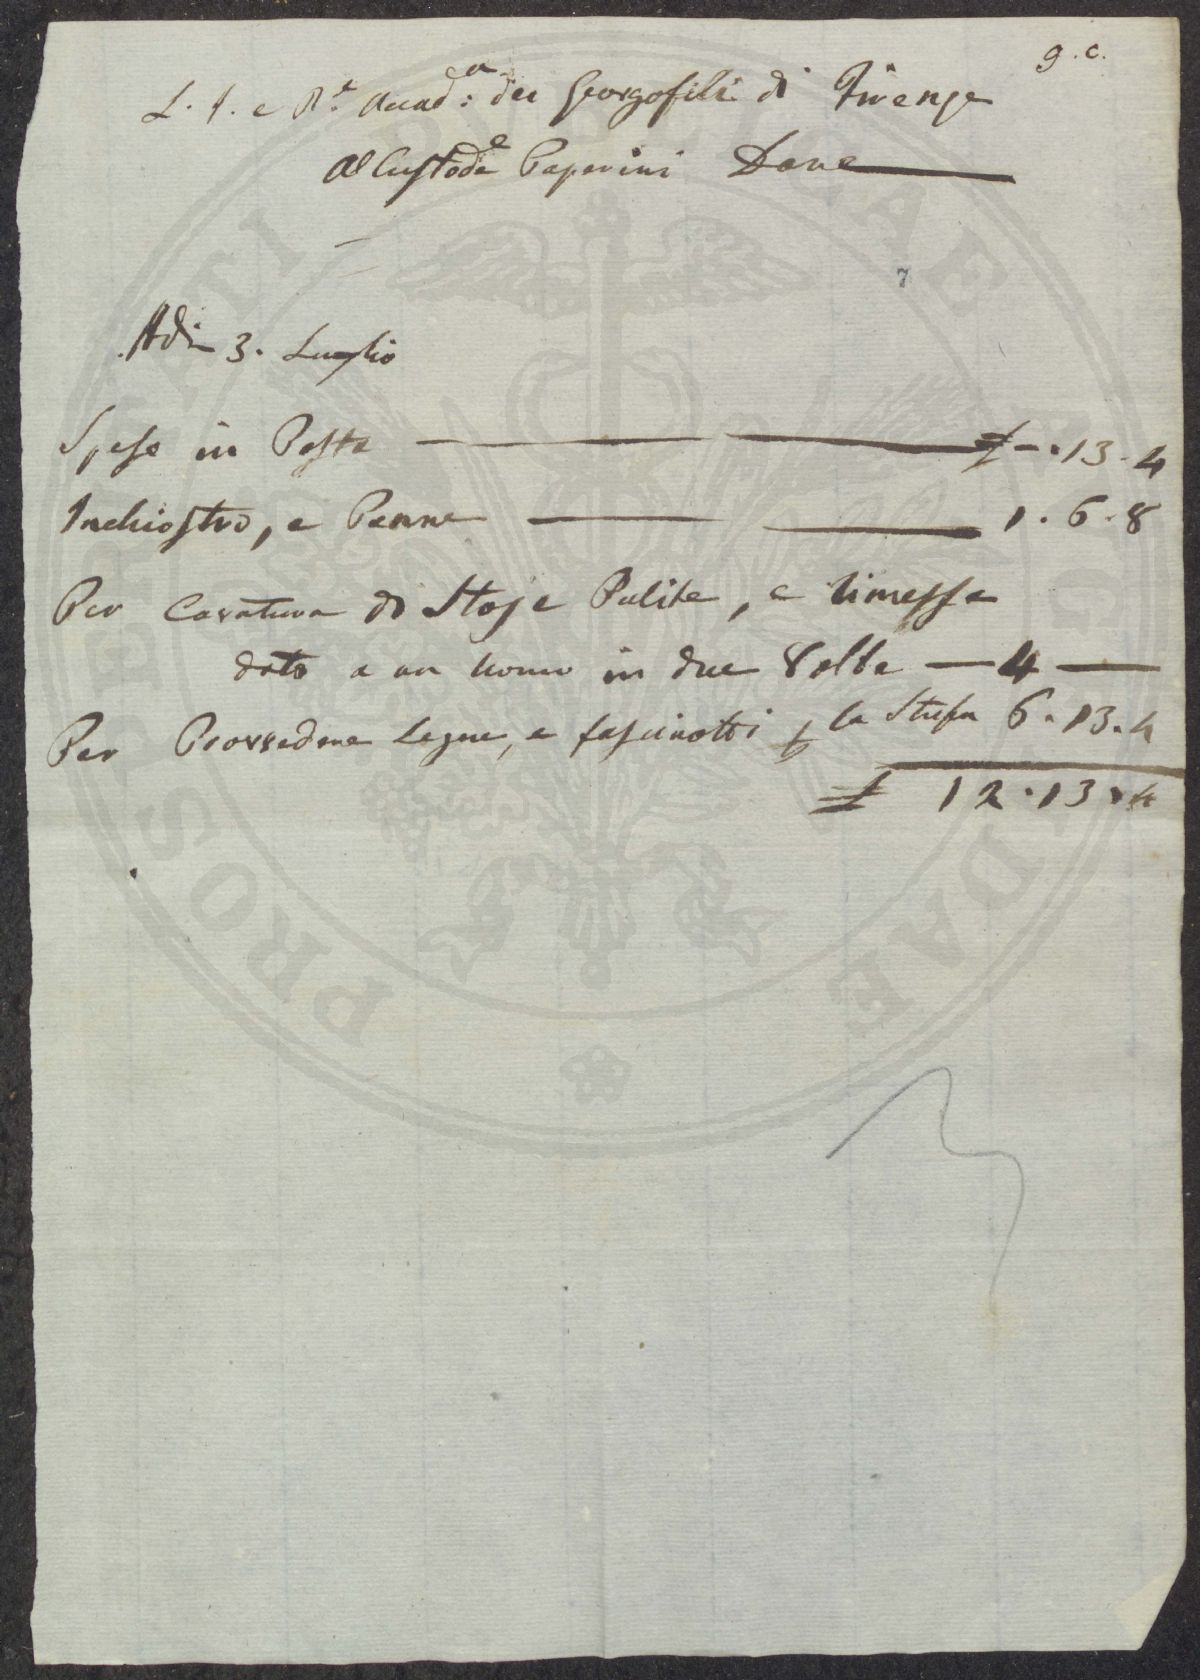 9. c.
L. I. e R.e Accad:a dei Georgofili di Firenze
Al Custode Paperini Dare
7
Adi 3. Luglio
Spese in Posta £ -. 13. 4
Inchiostro, e Penne 1. 6. 8
Per Cavatura di Stoje Pulite, e rimesse
dato a un uomo in due Volte — 4 —
Per Provvedere Legne, e fascinotti p la Stufa 6. 13. 4
£ 12. 13. 4
PROSPERITATI PUBLICAE AUGENDAE